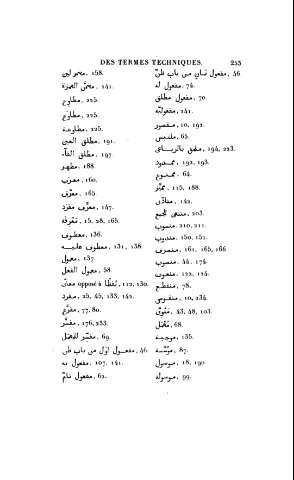 DES TERMES TECHNIQUES. 253
محولين, 158.
محلّ الهمزة, 241.
مطاوع, 225.
مطاوع, 225.
مطاوعة, 225.
مطلق العين, 191.
مطلق الفاء, 197.
مظهر, 188.
معرب, 160.
معرّف, 165.
معرّف مفرد, 147.
معرفة, 15, 28, 165.
معطوف, 136.
معطوف عليه, 131, 138.
معمول, 137.
معمول الفعل, 58.
معنى opposé à لفظا, 112, 130.
مفرد, 25, 45, 133, 142.
مفرّغ, 77, 80.
مفسّر, 176, 233.
مفسّر للمجمل, 69.
مفعول اوّل من باب ظنّ, 46.
مفعول به, 107, 141.
مفعول تامّ, 62.
مفعول ثان من باب ظنّ, 46.
مفعول له, 74.
مفعول مطلق, 70.
مفعوليّة, 241.
مقصور, 10, 192.
65.
ملحق بالرباعى, 194, 223.
ممدود, 192, 193.
ممنوع, 64.
مميّز, 115, 188.
منادى, 142.
منتهى الجموع, 203.
منسوب, 210, 211.
مندوب, 150, 151.
منصرف, 161, 165, 166
منصوب, 44, 174.
منعوت, 122, 124.
منقطع, 78.
منقوص, 10, 234.
منوّن, 43, 48, 103.
68.
موجبة, 135.
مؤنّث, 87.
موصول, 18, 190.
موصولة, 99.